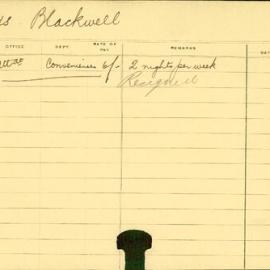 Blackwell
OFFICE DEPT. RATE OF PAY REMARKS
Conveniences 6/- 2 nights per week
Resigned